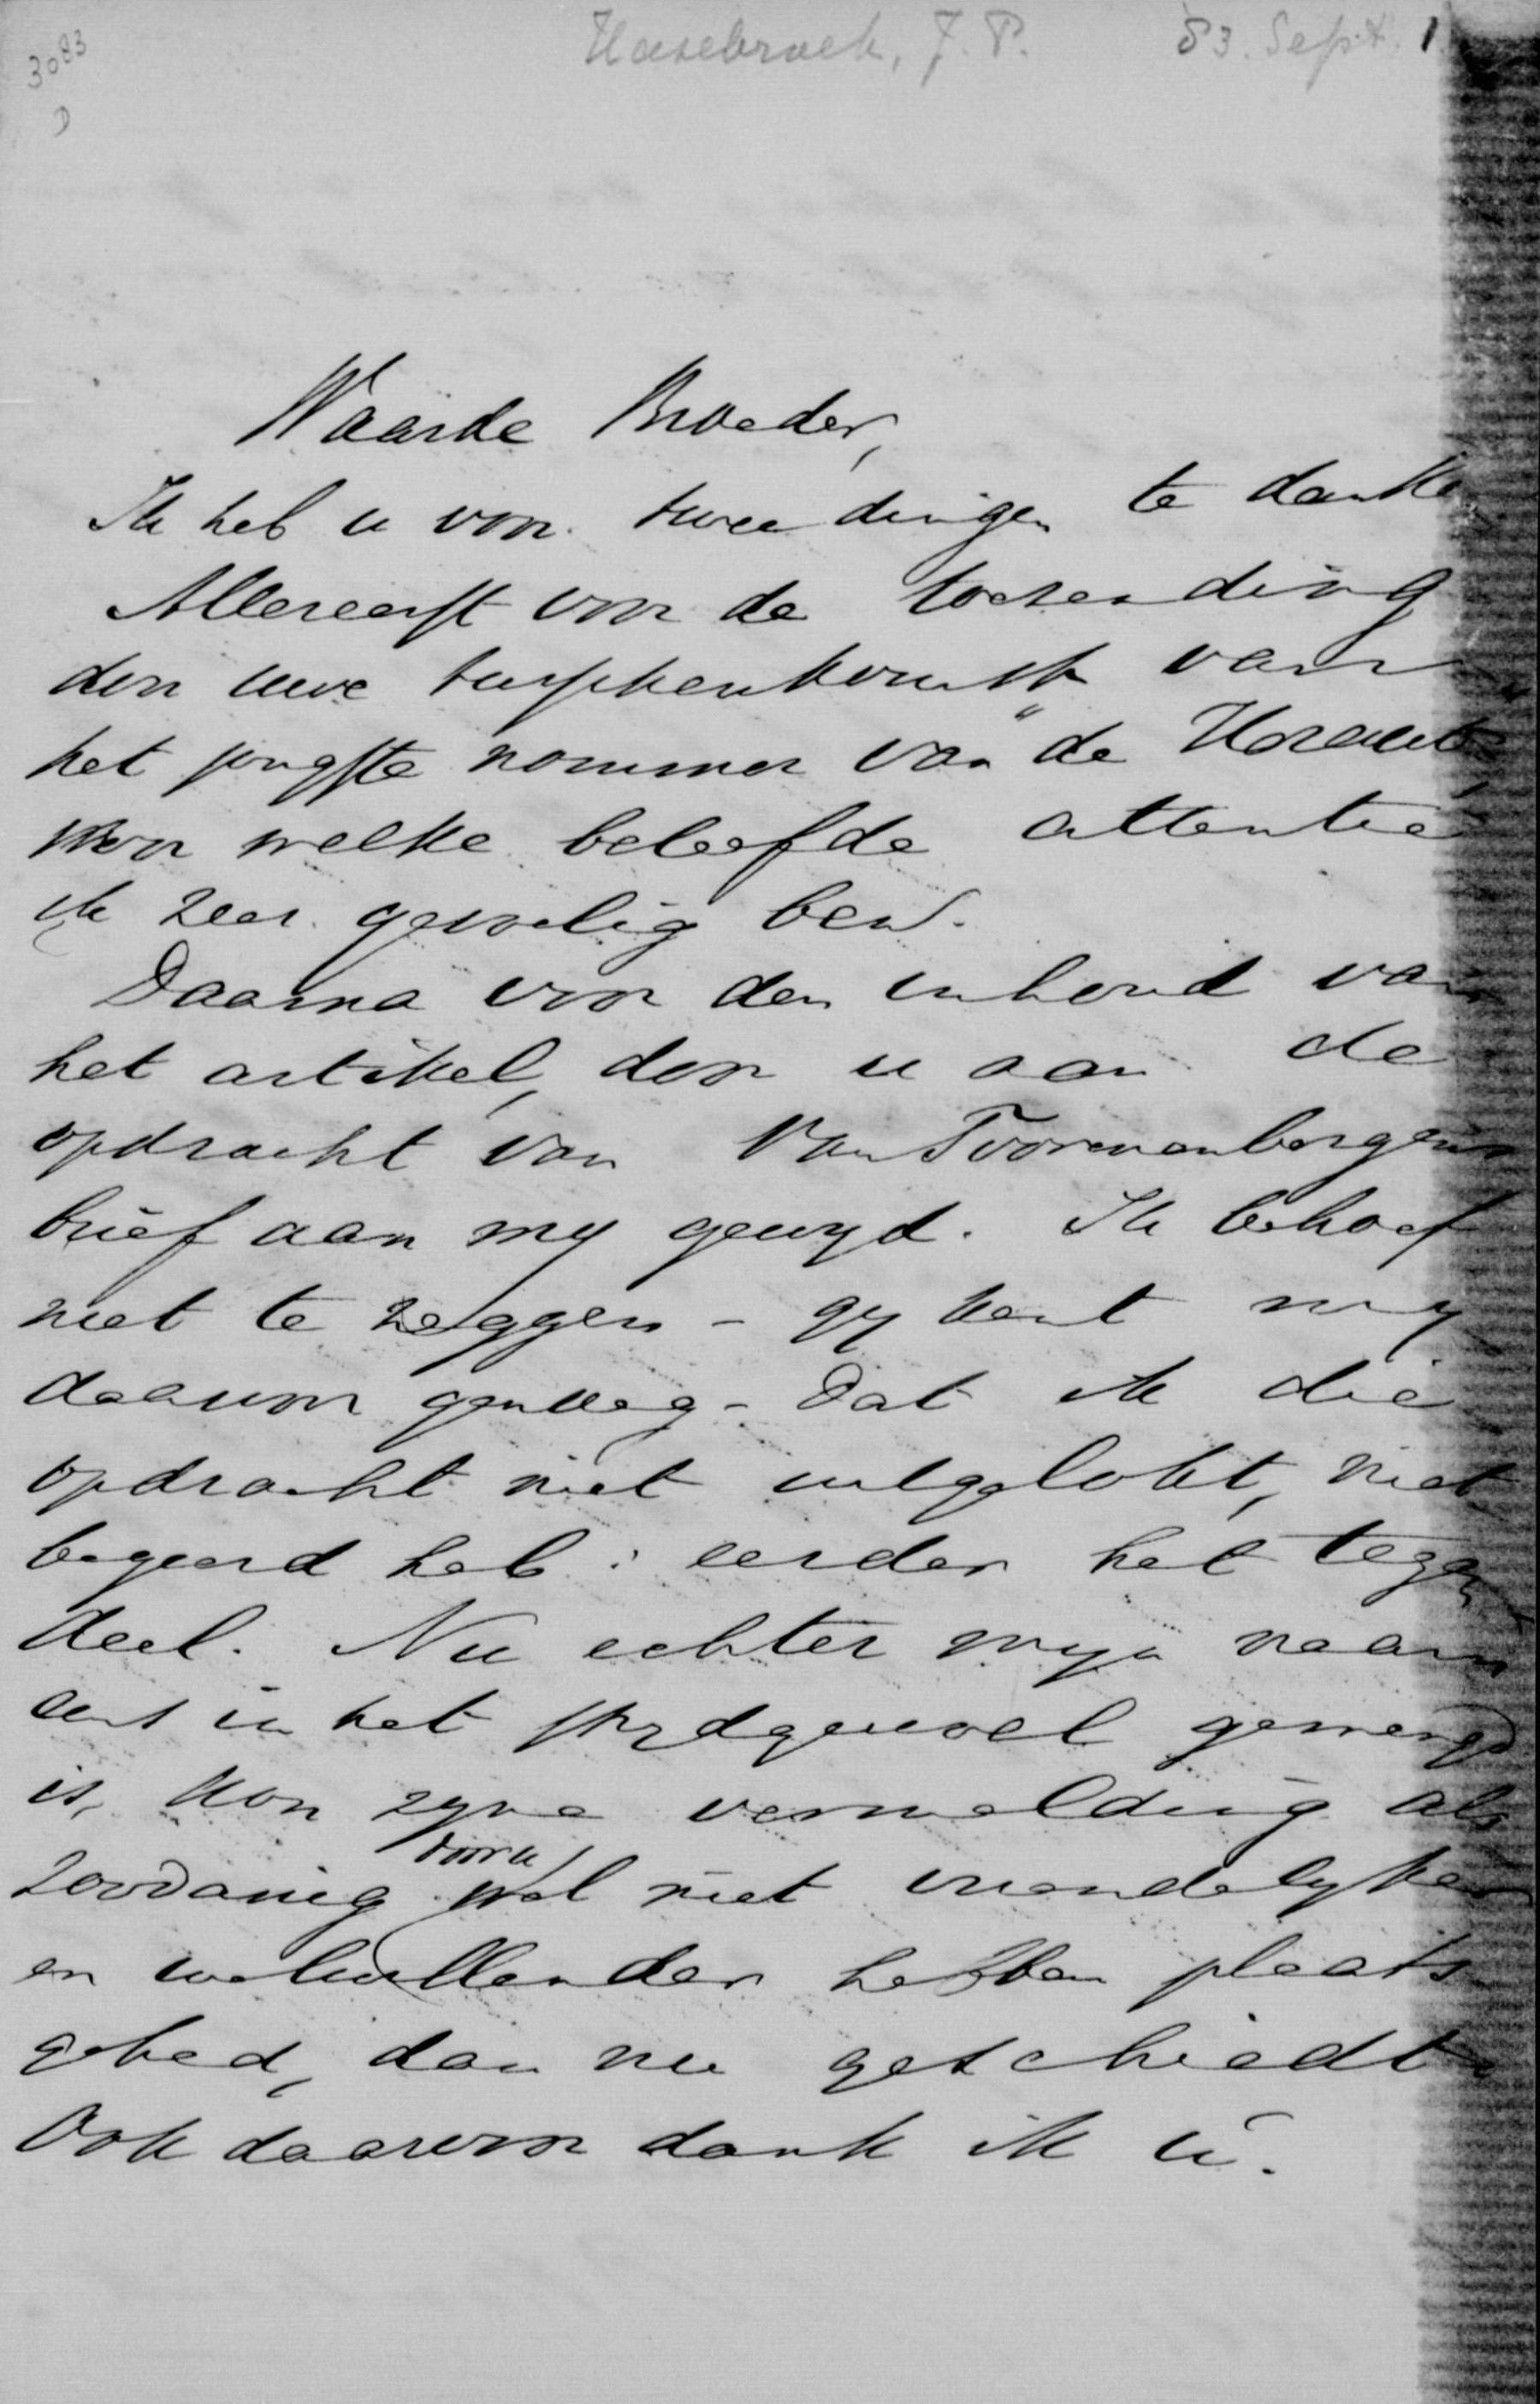 3083
D
Hasebroek, J. P. 83. Sept. 1
Waarde Broeder,
Ik heb u voor twee dingen te danke
Allereerst voor de toezending
door uwe tusschenkomst van
het jongste nommer van "de Heraut"
voor welke beleefde attentie
ik zeer gevoelig ben.
Daarna voor den inhoud van
het artikel, door u aan de
opdracht van Van Toorenenbergens
brief aan my gewyd. Ik behoef
niet te zeggen - gy kent my
daarvoor genoeg - dat ik die
opdracht niet uitgelokt, niet
begeerd heb: eerder het tegen
deel. Nu echter myn naam
eens in het strydgewoel gemengd
is, kon zyne vermelding als
zoodanig door u wel niet vriendelyker
en welwillender hebben plaats
gehad, dan nu geschiedt.
Ook daarvoor dank ik u.